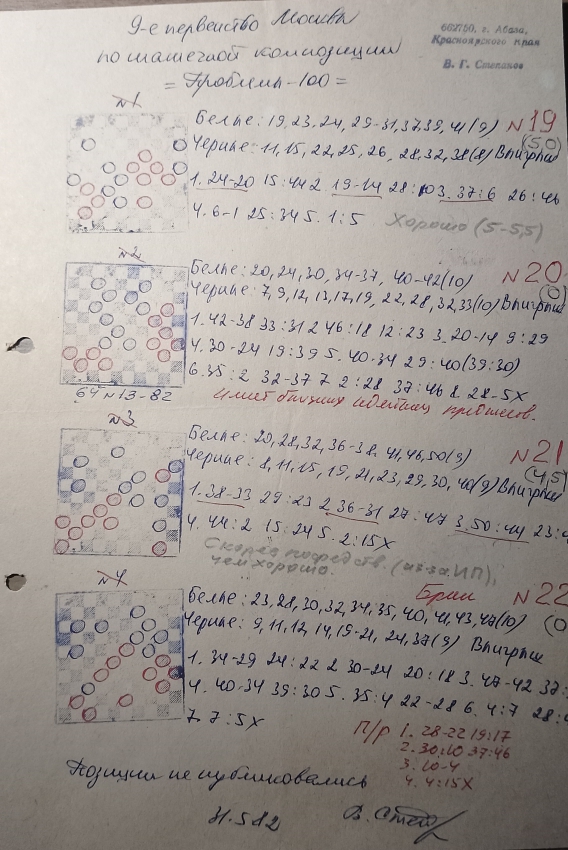 9-е первенство Москвы
по шашечной композиции
= Проблемы-100 =
662750, г. Абаза,
Красноярского края
В. Г. Степанов
№1
Белые: 19, 23, 24, 29-31, 37, 39, 41 (9) №19
Черные: 11, 15, 22, 25, 26, 28, 32, 38 (8) Выигрыш (5,0)
1. 24-20 15:44 2. 19-14 28:10 3. 37:6 26:46
4. 6-1 25:34 5. 1:5 Хорошо (5-5,5)
№2
Белые: 20, 24, 30, 34-37, 40-42 (10) №20
Черные: 7, 9, 12, 13, 17, 19, 22, 28, 32, 33 (10) Выигрыш (0)
1. 42-38 33:31 2. 46:18 12:23 3. 20-14 9:29
4. 30-24 19:39 5. 40-34 29:40 (39:30)
6. 35:2 32-37 7. 2:28 37:46 8. 28-5X
64 №13-82
Имеет близких идейных предшеств.
№3
Белые: 20, 28, 32, 36-38, 41, 46, 50 (9) №21
Черные: 8, 11, 15, 19, 21, 23, 29, 30, 40 (9) Выигрыш (4,5)
1. 38-33 29:23 2. 36-31 27:47 3. 50:44 23:4
4. 44:2 15:24 5. 2:15X
Скорее посредств. (из-за ИП),
чем хорошо.
№4
Белые: 23, 28, 30, 32, 34, 35, 40, 41, 43, 47 (10) Брии №22
Черные: 9, 11, 12, 14, 19-21, 24, 37 (9) Выигрыш (0
1. 34-29 24:22 2. 30-24 20:18 3. 47-42 37:
4. 40-34 39:30 5. 35:4 22-28 6. 4:7 28:
7. 7:5X
П/р 1. 28-22 19:17
2. 30:10 37:46
3. 10-4
4. 4:15X
Позиции не публиковались
31.5.82